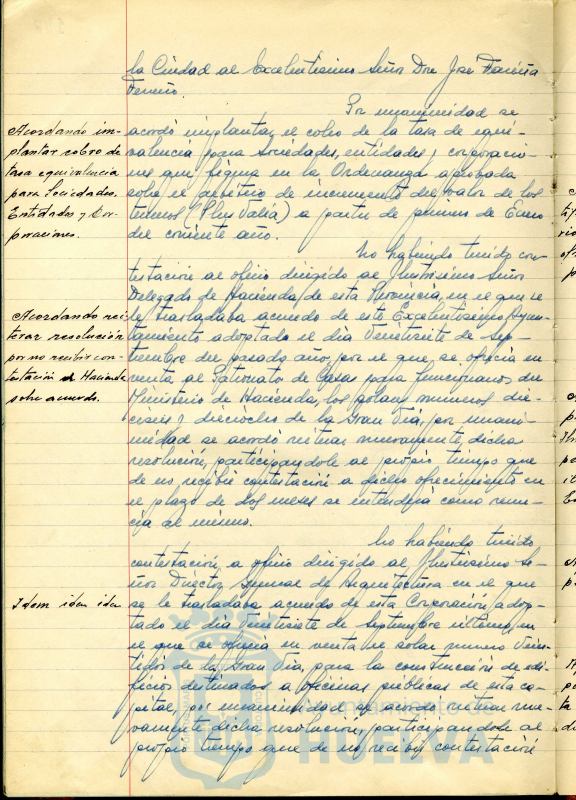 la Ciudad al Excelentísimo Señor Don José Fariña
Ferreño.
Por unanimidad se
Acordando im-
plantar cobro de
tasa equivalencia
para Sociedades,
Entidades y Cor-
poraciones.
acordó implantar el cobro de la tasa de equi-
valencia para Sociedades, entidades y corporacio-
nes que figura en la Ordenanza aprobada
sobre el arbitrio de incremento del valor de los
terrenos (Plus Valía) a partir de primero de Enero
del corriente año.
No habiendo tenido con-
testación al oficio dirigido al Ilustrísimo Señor
Acordando rei-
terar resolución
por no recibir con-
testación de Hacienda
sobre acuerdo.
Delegado de Hacienda de esta Provincia, en el que se
le trasladaba acuerdo de este Excelentísimo Ayun-
tamiento adoptado el día Veintisiete de Sep-
tiembre del pasado año, por el que, se ofrecía en
venta al Patronato de Casas para funcionarios del
Ministerio de Hacienda, los solares números die-
ciseis y dieciocho de la Gran Vía, por unani-
midad se acordó reiterar nuevamente, dicha
resolución, participandole al propio tiempo que
de no recibir contestación a dicho ofrecimiento en
el plazo de dos meses se entendería como renun-
cia al mismo.
No habiendo tenido
contestación, a oficio dirigido al Ilustrísimo Se-
ñor Director General de Arquitectura en el que
Idem idem idem
se le trasladaba acuerdo de esta Corporación, adop-
tado el día Veintisiete de Septiembre último, en
el que se ofrecía en venta el solar número Vein-
tidos de la Gran Vía, para la construcción de edi-
ficios destinados a oficinas públicas de esta ca-
pital, por unanimidad se acordó reiterar nue-
vamente dicha resolución, participandole al
propio tiempo que de no recibir contestación
Ayuntamiento de
HUELVA